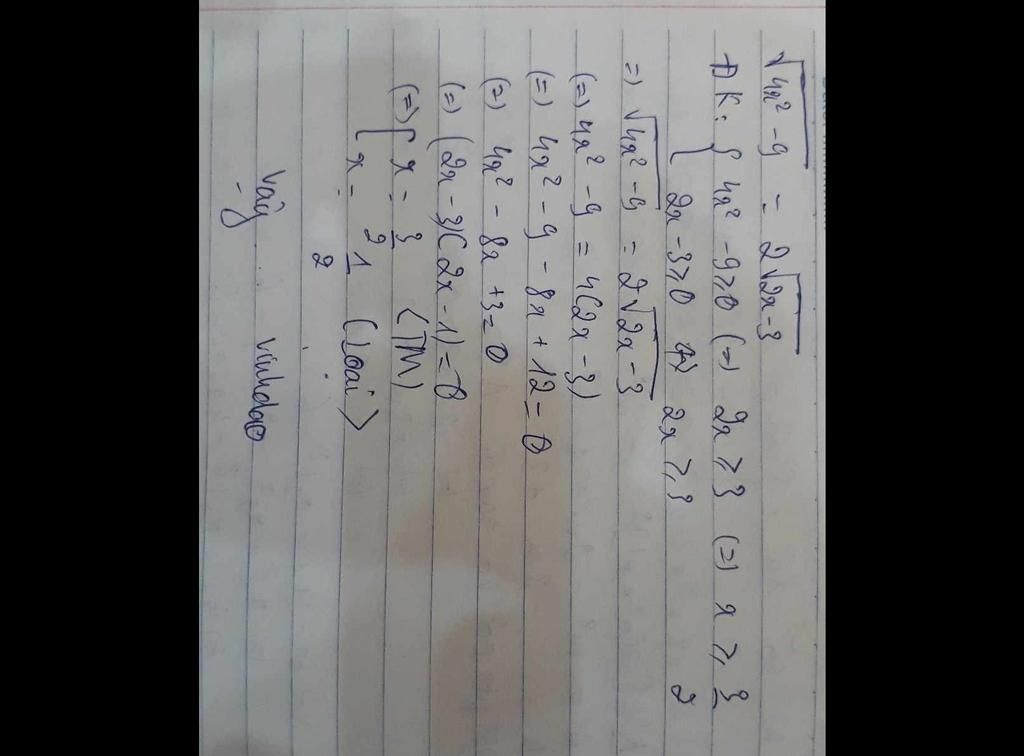 √(4x² - 9) = 2√(2x-3)
ĐK: { 4x² - 9 ≥ 0 (=) 2x ≥ 3 (=) x ≥ 3/2
2x - 3 ≥ 0 (=) 2x ≥ 3
=) √(4x² - 9) = 2√(2x - 3)
(=) 4x² - 9 = 4(2x - 3)
(=) 4x² - 9 - 8x + 12 = 0
(=) 4x² - 8x + 3 = 0
(=) (2x - 3)(2x - 1) = 0
(=) { x = 3/2 (TM)
x = 1/2 (Loại)
Vậy